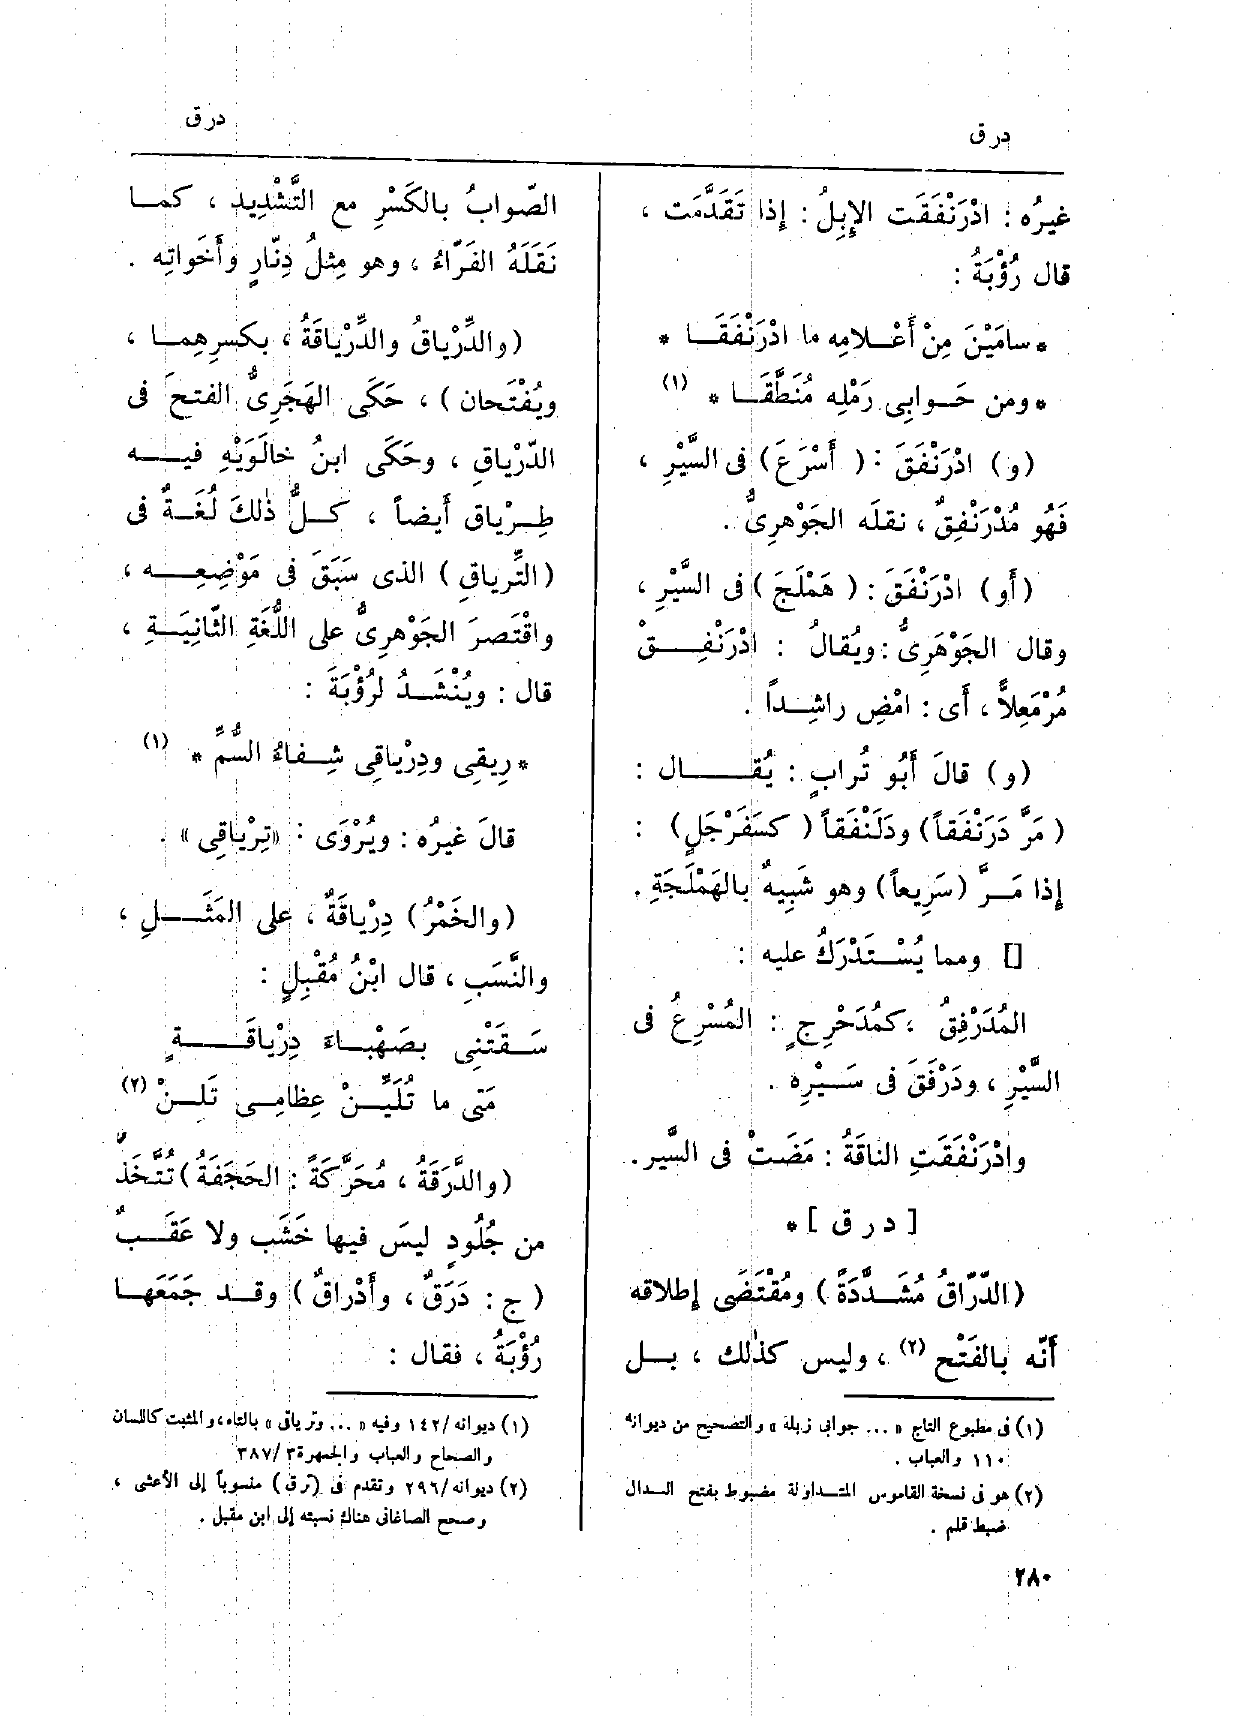 درق
درق
غيرُه : ادْرَنْفَقَت الإِبِلُ : إِذا تَقَدَّمَت ،
قال رُؤْبَةُ :
* سامَيْنَ مِنْ أَعْلامِه ما ادْرَنْفَقَا *
* ومن حَوابِى رَمْلِه مُنَطَّقَا * (١)
(و) ادْرَنْفَقَ : ( أَسْرَعَ) فى السَّيْرِ ،
فَهُو مُدْرَنْفِقٌ ، نقلَه الجَوْهرِىُّ .
(أَو) ادْرَنْفَقَ : ( هَمْلَجَ ) فى السَّيْرِ ،
وقال الجَوْهَرِىُّ : ويُقالُ : ادْرَنْفِقْ
مُرْمَعِلاًّ ، أَى : امْضِ راشِداً .
(و) قالَ أَبُو تُرابٍ : يُقال :
( مَرَّ دَرَنْفَقاً) ودَلَنْفَقاً ( كسَفَرْجَلٍ) :
إِذا مَرَّ (سَرِيعاً) وهو شَبِيهٌ بالهَمْلَجَةِ .
[] ومما يُسْتَدْرَكُ عليه :
المُدَرْفِقُ ، كمُدَحْرِجٍ : المُسْرِعُ فى
السَّيْرِ ، ودَرْفَقَ فى سَيْرِه .
وادْرَنْفَقَتِ الناقَةُ : مَضَتْ فى السَّير .
[ د ر ق ] *
(الدَّرّاقُ مُشَدَّدَةً ) ومُقْتَضَى إِطلاقه
أَنّه بالفَتْح (٢) ، وليس كذٰلك ، بل
(١) فى مطبوع التاج « ... جوابى زبلة » والتصحيح من ديوانه
١١٠ والعباب .
(٢) هو فى نسخة القاموس المتداولة مضبوط بفتح الدال
ضبط قلم .
٢٨٠
الصّوابُ بالكَسْرِ مع التَّشْدِيد ، كما
نَقَلَهُ الفَرّاءُ ، وهو مِثلُ دِنّارٍ وأَخَواتِه .
(والدِّرْياقُ والدِّرْياقَةُ ، بكسرِهِما ،
ويُفْتَحان ) ، حَكَى الهَجَرِىُّ الفتحَ فى
الدّرْياقِ ، وحَكَى ابنُ خالَوَيْهِ فيه
طِرْياق أَيضاً ، كلُّ ذٰلكَ لُغَةٌ فى
(التِّرياقِ ) الذى سَبَقَ فى مَوْضِعِه ،
واقْتَصرَ الجَوْهرِىُّ على اللُّغَةِ الثّانِيَةِ ،
قال : ويُنْشَدُ لرُؤْبَةَ :
* رِيقِى ودِرْياقِى شِفاءُ السُّمِّ * (١)
قالَ غيرُه : ويُرْوَى : «تِرْياقِى » .
(والخَمْرُ) دِرْياقَةٌ ، على المَثَلِ ،
والنَّسَبِ ، قال ابْنُ مُقْبِلٍ :
سَقَتْنِى بصَهْباءَ دِرْياقَةٍ
مَتى ما تُلَيِّنْ عِظامِى تَلِنْ (٢)
(والدَّرَقَةُ ، مُحَرَّكَةً : الحَجَفَةُ ) تُتَّخَذُ
من جُلُودٍ ليسَ فيها خَشَب ولا عَقَبٌ
( ج : دَرَقٌ ، وأَدْراقٌ ) وقد جَمَعَها
رُؤْبَةُ ، فقال :
(١) ديوانه /١٤٢ وفيه « ... وترياقى » بالتاء ، والمثبت كاللسان
والصحاح والعباب والجمهرة ٣/ ٣٨٧
(٢) ديوانه /٢٩٦ وتقدم فى (رق ) منسوباً إلى الأعشى ،
وصحح الصاغانى هناك نسبته إلى ابن مقبل .